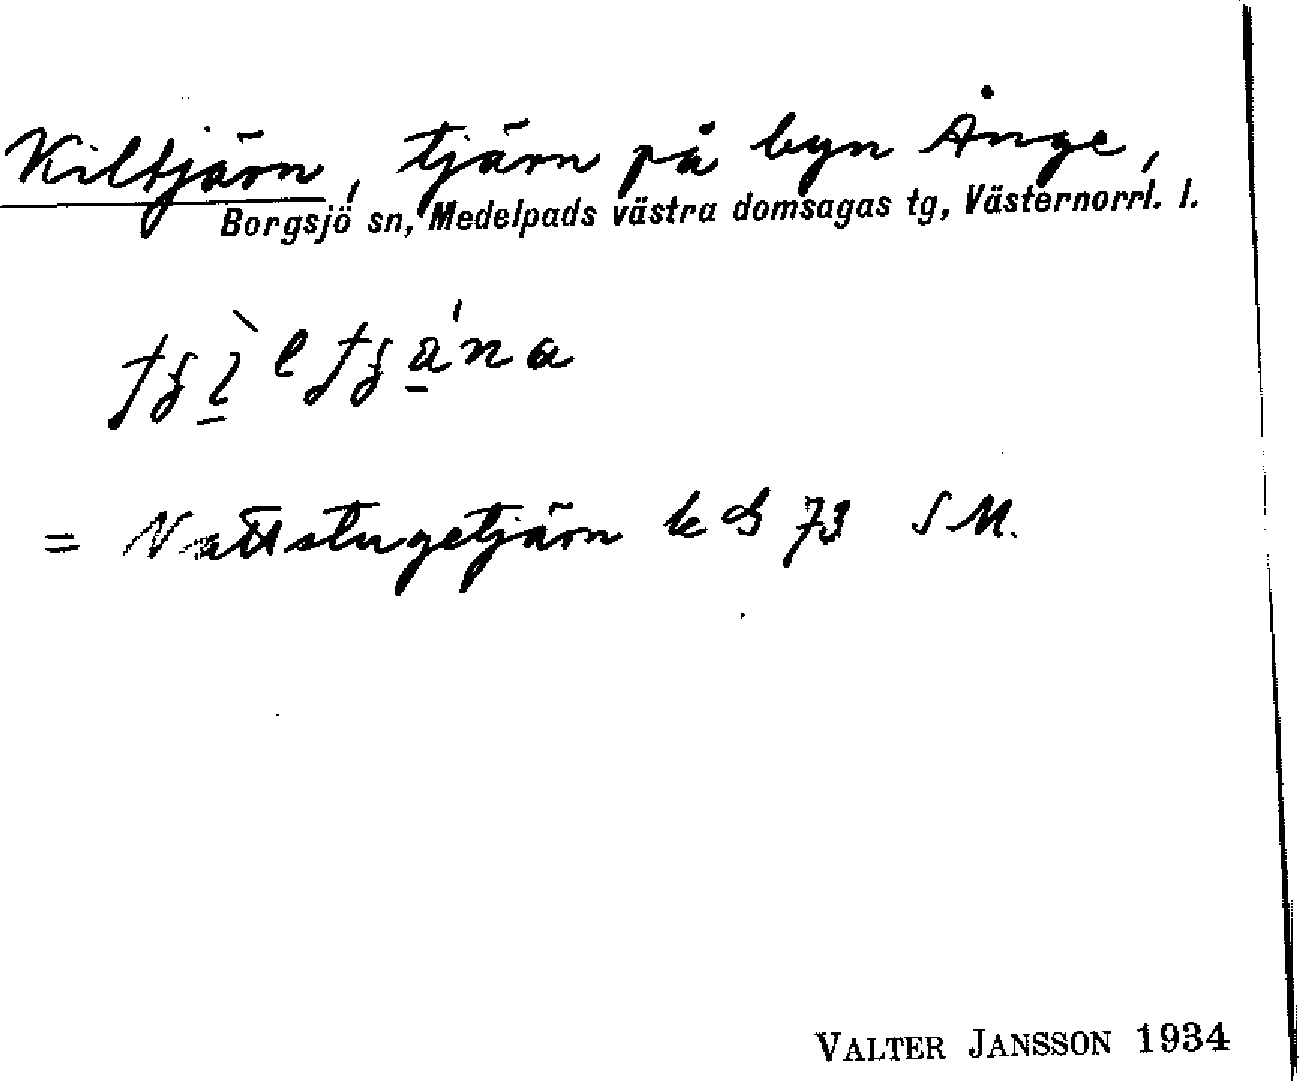 Kiltjärn, tjärn på byn Ånge,
Borgsjö sn, Medelpads västra domsagas tg, Västernorrl. l.
= Nattstugetjärn 73 SM.
VALTER JANSSON 1934